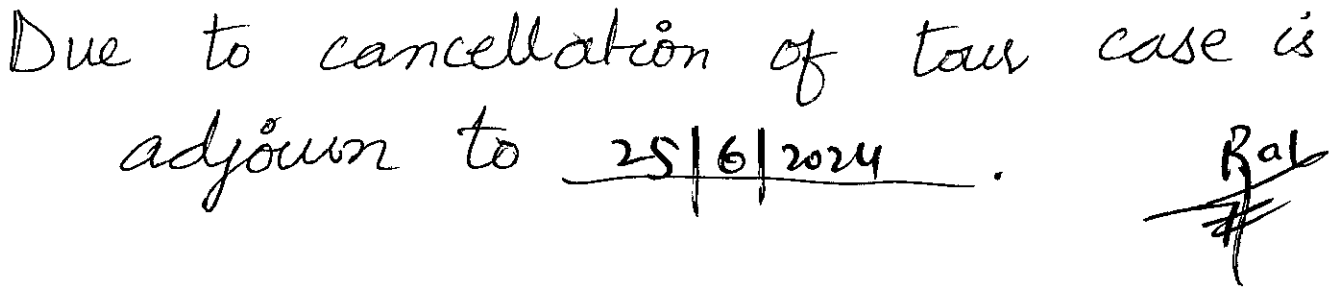 Due to cancellation of tour case is
adjourn to 25/6/2024.